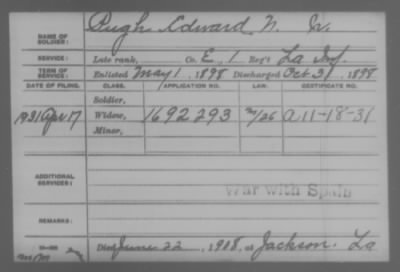 NAME OF SOLDIER: Pugh, Edward N. Jr.
SERVICE: Late rank, Co. E, 1 Reg't La Inf.
TERM OF SERVICE: Enlisted May 1, 1898 Discharged Oct 31, 1898
DATE OF FILING. CLASS. APPLICATION NO. LAW. CERTIFICATE NO.
Soldier,
1931 Apr 17 Widow, 1692293 a 11-18-31
Minor,
ADDITIONAL SERVICES:
War with Spain
REMARKS:
Died June 22, 1918, at Jackson. La